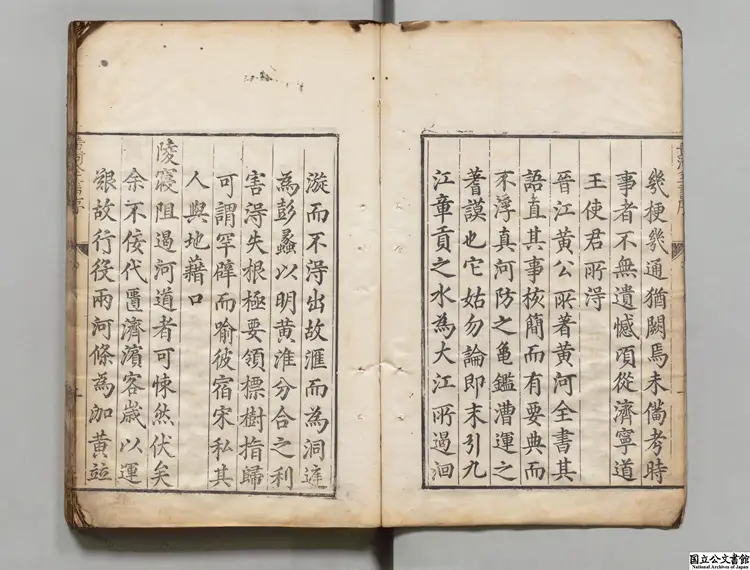 幾梗幾通猶闕焉未僃考時
事者不無遺憾頃從濟寧道
王使君所淂
晉江黃公所著黃河全書其
語直其事核簡而有要典而
不浮真河防之龜鑑漕運之
蓍謨也它姑勿論即末引九
江章貢之水為大江所遏洄
漩而不淂出故滙而為洞
為彭蠡以明黃淮分合之利
害淂失根極要領標樹指歸
可謂罕譬而喻彼宿宋私其
人與地藉口
陵寢阻遏河道者可悚然伏矣
余不佞代匱濟濱客歲以運
艱故行役兩河條為泇黃竝
国立公文書館
National Archives of Japan